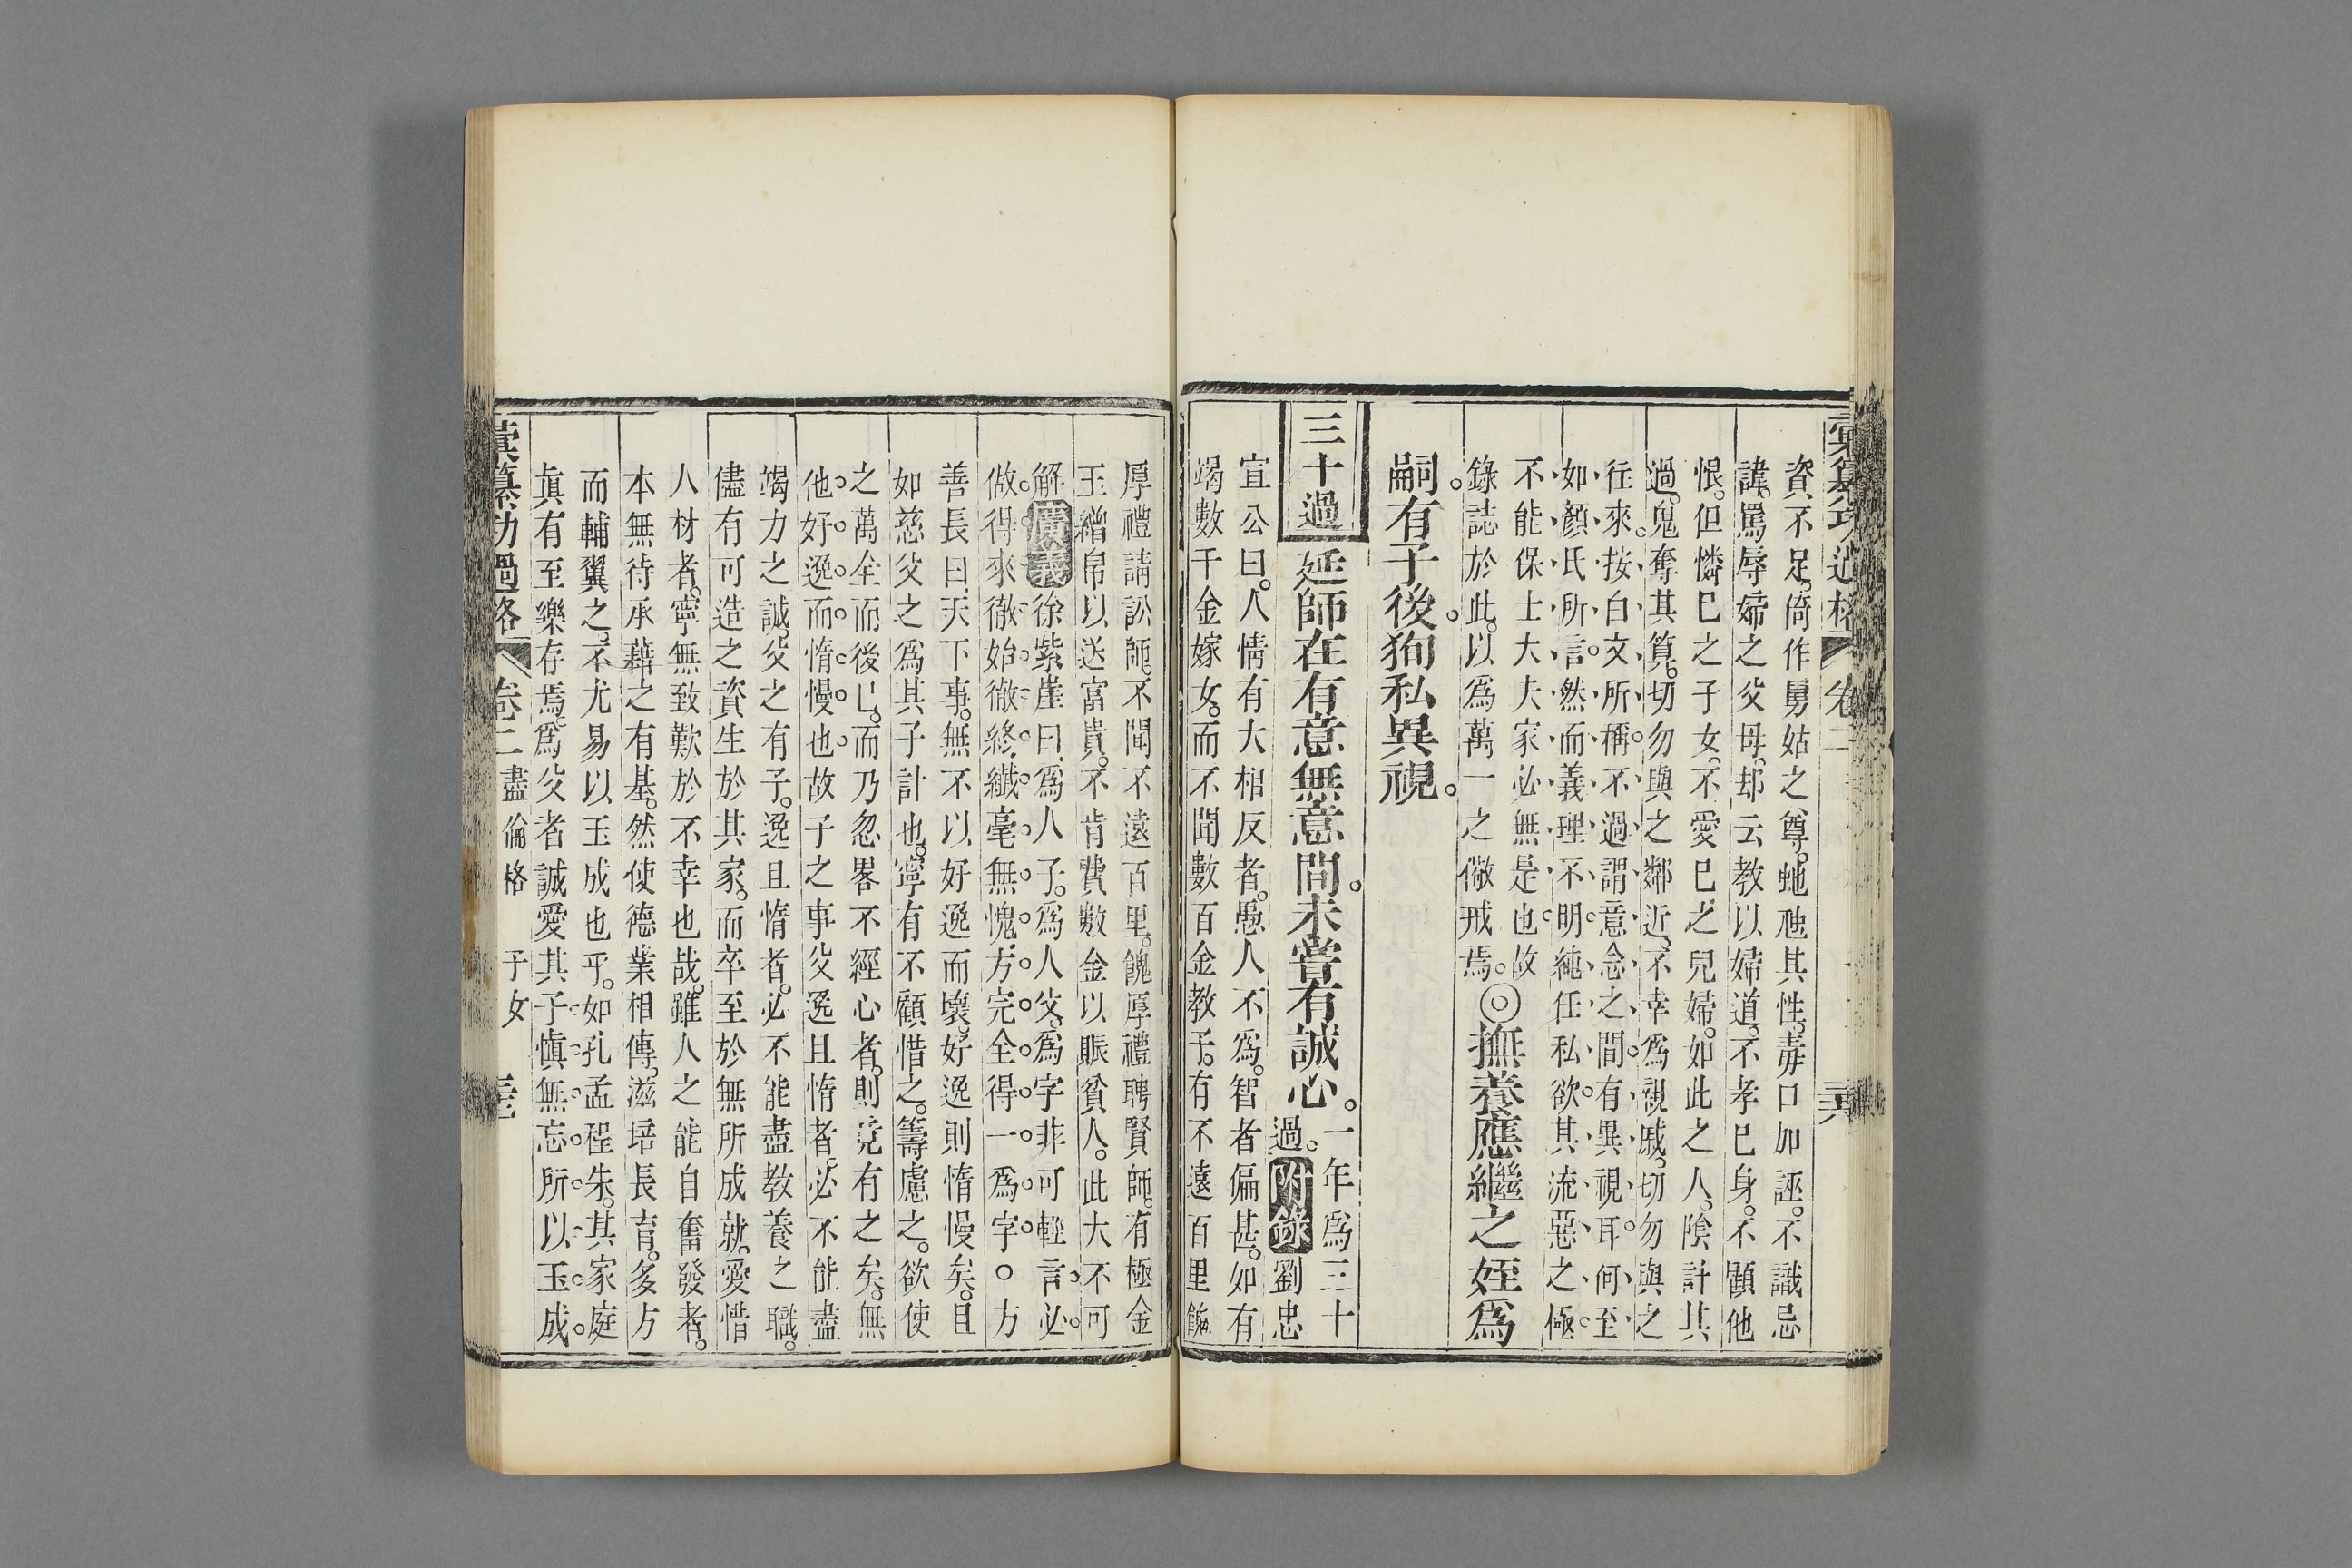 彙纂功過格 卷二
資不足。倚作舅姑之尊。虵虺其性。毒口加誣。不識忌
諱。罵辱婦之父母。却云教以婦道。不孝己身。不顧他
恨。但憐已之子女。不愛已之兒婦。如此之人。陰計其
過。鬼奪其算。切勿與之鄰近。不幸為親戚。切勿與之
徃來。按白文所稱。不過謂意念之間。有異視耳。何至
如顏氏所言。然而義理不明。純任私欲。其流惡之極。
不能保士大夫家必無是也。故
錄誌於此。以為萬一之儆戒焉。◎撫養應繼之姪爲
嗣。有子後。狥私異視。
三十過
延師在有意無意間。未嘗有誠心。一年爲三十
過。附錄劉忠
宣公曰。人情有大相反者。愚人不為。智者偏甚。如有
竭數千金嫁女。而不聞數百金教子。有不遠百里餽
厚禮請訟師。不聞不遠百里。餽厚禮聘賢師。有極金
玉繒帛以送富貴。不肯費數金以賑貧人。此大不可
解。廣義徐紫崖曰。爲人子。爲人父。爲字非可輕言。必
做得來徹始徹終。纖毫無愧。方完全得一爲字。○方
善長曰。天下事。無不以好逸而壞。好逸則惰慢矣。且
如慈父之爲其子計也。寧有不顧惜之。籌慮之。欲使
之萬全而後已。而乃忽畧不經心者。則竟有之矣。無
他。好逸而惰慢也。故子之事父逸且惰者。必不能盡
竭力之誠。父之有子。逸且惰者。必不能盡教養之職。
儘有可造之資生於其家。而卒至於無所成就。愛惜
人材者。寧無致歎於不幸也哉。雖人之能自奮發者。
本無待承藉之有基。然使德業相傳。滋培長育。多方
而輔翼之。不尤易以玉成也乎。如孔孟程朱。其家庭
眞有至樂存焉。爲父者誠愛其子。愼無忘所以玉成。
彙纂功過格 卷二 盡倫格 子女